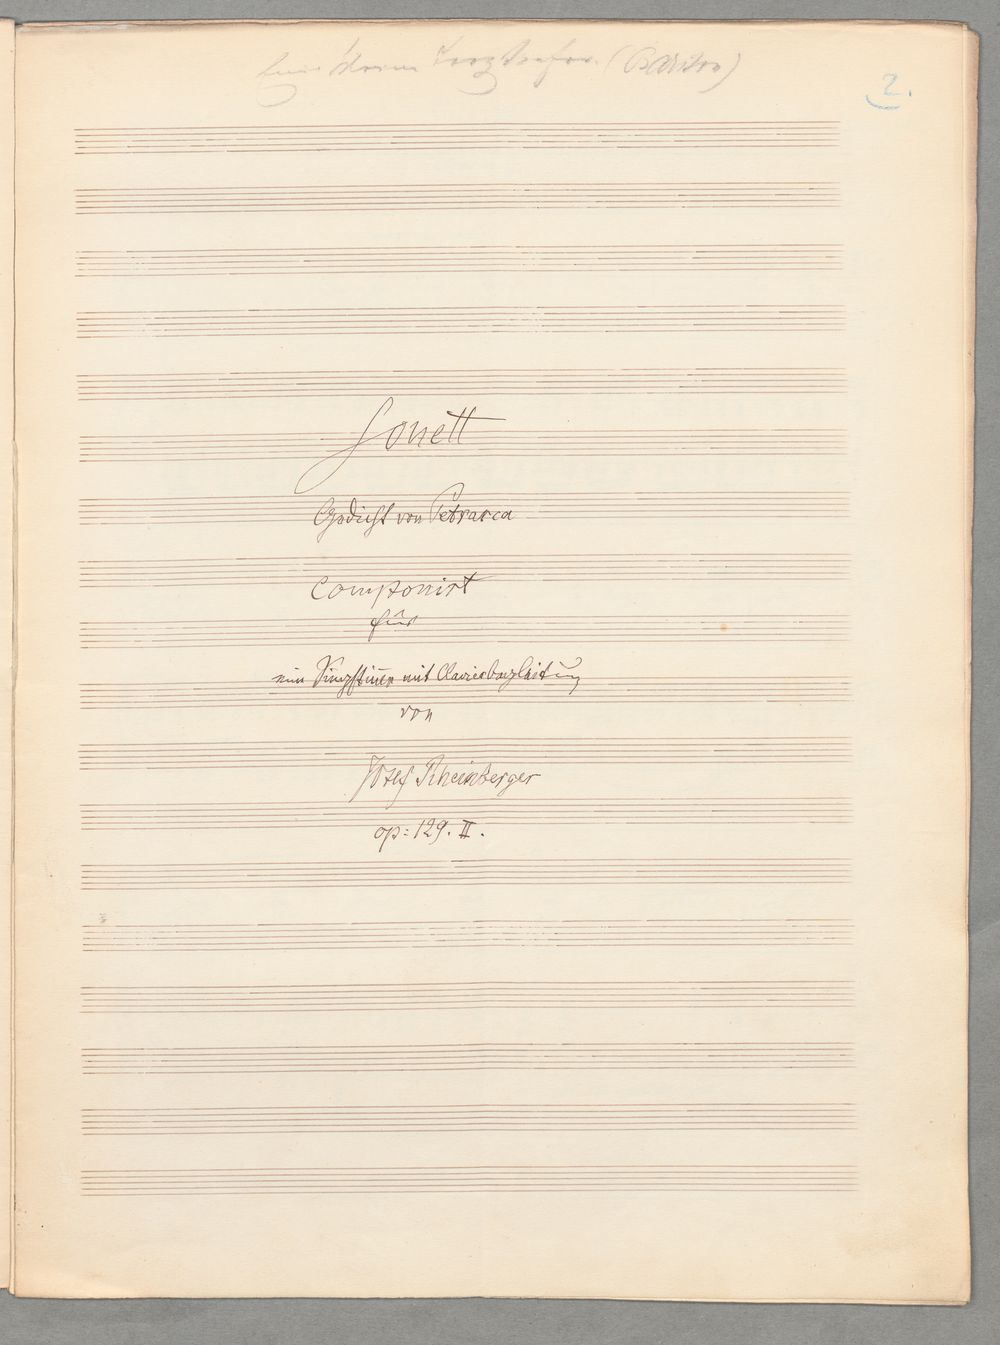 (Bariton)
2.
Sonett
Gedicht von Petrarca
componirt
für
eine Singstimme mit Clavierbegleitung
von
Josef Rheinberger
op: 129. II.